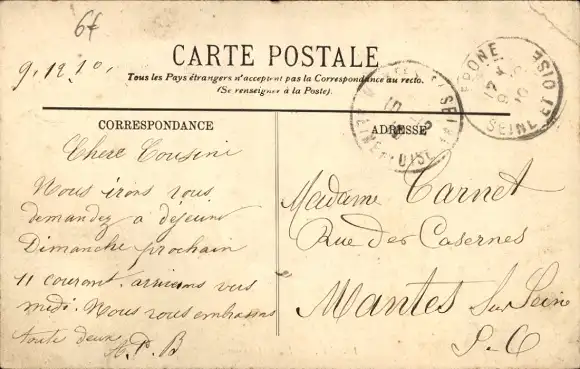 6f
9.12.10.
CARTE POSTALE
Tous les Pays étrangers n'acceptent pas la Correspondance au recto.
(Se renseigner à la Poste).
EPONE
SEINE ET OISE
SEINE ET OISE
CORRESPONDANCE
ADRESSE
Chere Cousine
Nous irons vous
demandez a dejeuner
Dimanche prochain
11 courant. arriverons vers
midi. Nous vous embrassons
toute deux
A. P. B
Madame Carnet
Rue des Casernes
Mantes Sur Seine
S-O